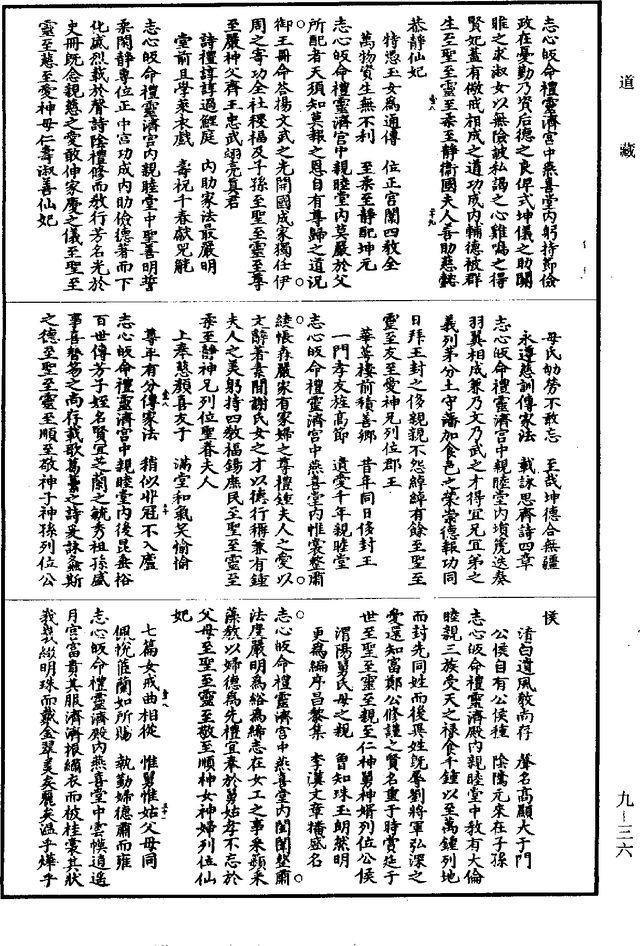 道藏
志心皈命禮靈濟宮中燕喜堂內躬持節儉
政在憂勤乃資后德之良俾式坤儀之助關
雎之求淑女以無險詖私謁之心雞鳴之得
賢妃蓋有儆戒相成之道功成內輔德被群
生至聖至靈至柔至靜衛國夫人善助慈懿
恭靜仙妃
特恩玉女為通傳　位正宮闈四教全
萬物資生無不利　至柔至靜配坤元
志心皈命禮靈濟宮中親睦堂內莫嚴於父
所配者天須知莫報之恩自有尊歸之道況
御王冊命荅揚文武之光開國成家獨任伊
周之寄功全社稷福及子孫至聖至靈至尊
至嚴神父齊王忠武翊亮真君
詩禮諄諄過鯉庭　內助家法最嚴明
堂前且學萊衣戲　壽祝千春獻兕觥
志心皈命禮靈濟宮內親睦堂中聖善明誓
柔閑靜專位正中宮功成內助儉德著而下
化威烈載於聲詩陰禮修而教行芳名光於
史冊既念親慈之愛敢伸家慶之儀至聖至
靈至慈至愛神母仁壽淑善仙妃
母氏劬勞不敢忘　至哉坤德合無疆
永遵慈訓傳家法　載詠思齊詩四章
志心皈命禮靈濟宮中親睦堂內塤篪迭奏
羽翼相成兼乃文乃武之才得宜兄宜弟之
義列第分土守藩加食邑之榮崇德報功同
日拜王封之後親親不怨綽綽有餘至聖至
靈至友至愛神兄列位郡王
華萼樓前積善鄉　昔年同日侈封王
一門孝友族高節　遺愛千年親睦堂
志心皈命禮靈濟宮中燕喜堂內帷裳整肅
綾帳森嚴家有冢婦之尊禮鍾夫人之愛以
文辭著素閑謝氏女之才以德行稱兼有鍾
夫人之美躬持四教福錫庶民至聖至靈至
柔至靜神兄列位聖眷夫人
上奉慈顏喜友于　滿堂和氣笑愉愉
尊年有分傳家法　稍似非冠不入廬
志心皈命禮靈濟宮中親睦堂內後昆垂裕
百世傳芳子姪名賢宜芝蘭之毓秀祖孫盛
事喜磐笏之尚存載歌葛藟之詩爰詠螽斯
之德至聖至靈至順至敬神子神孫列位公
侯
清白遺風教尚存　聲名高顯大于門
公侯自有公侯種　陰騭元來在子孫
志心皈命禮靈濟殿內親睦堂中教有大倫
睦親三族受天之祿食千鍾以至萬鍾列地
而封先同姓而後異姓既孱劉將軍弘深之
愛還知富鄭公修謹之賢名重于時賞延于
世至聖至靈至親至仁神舅神婿列位公侯
渭陽舅氏母之親　曾知珠玉朗然明
更為編序昌黎集　李漢文章播盛名
志心皈命禮靈濟宮中燕喜堂內閨閫整肅
法度嚴明為綌為絺志在女工之事采蘋采
藻教以婦德為先禮宜奉於舅姑孝不忘於
父母至聖至靈至敬至順神女神婦列位仙
妃
七篇女戒曲相從　惟舅惟姑父母同
佩帨茝蘭如所賜　執勤婦德肅而雍
志心皈命禮靈濟殿內燕喜堂中雲幙逍遙
月宮富貴其服濟濟振繡衣而被桂裳其狀
我我綴明珠而戴金翠美矣麗矣溫乎燁乎
九—三六